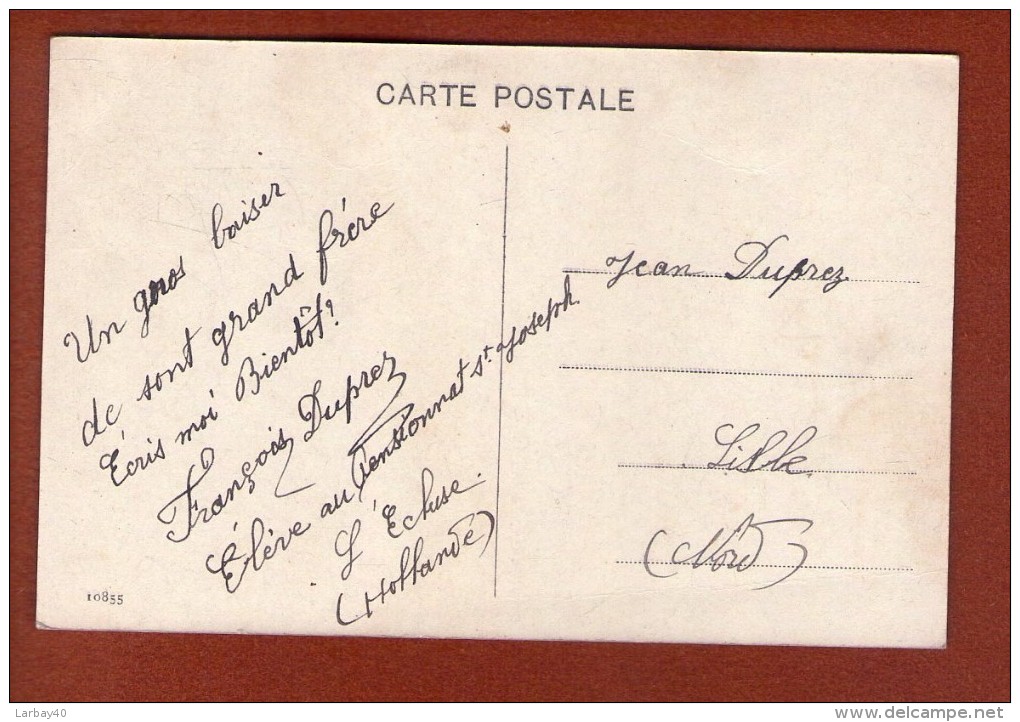 CARTE POSTALE
Un gros baiser
de sont grand frére
Écris moi Bientôt?
François Duprez
Élève au Pensionnat St. Joseph.
L'Écluse.
(Hollande)
Jean Duprez
Lille
(Nord)
10855
Larbay40
www.delcampe.net